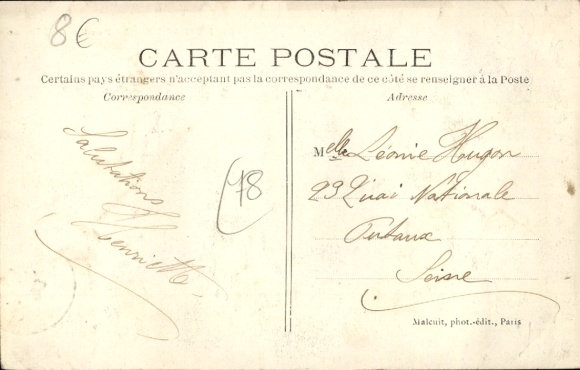 8€
CARTE POSTALE
Certains pays étrangers n'acceptant pas la correspondance de ce côté se renseigner à la Poste
Correspondance
Adresse
Salutations
Henriette
78
Melle Léonie Hugon
23 Quai Nationale
Puteaux
Seine
Malcuit, phot.-édit., Paris